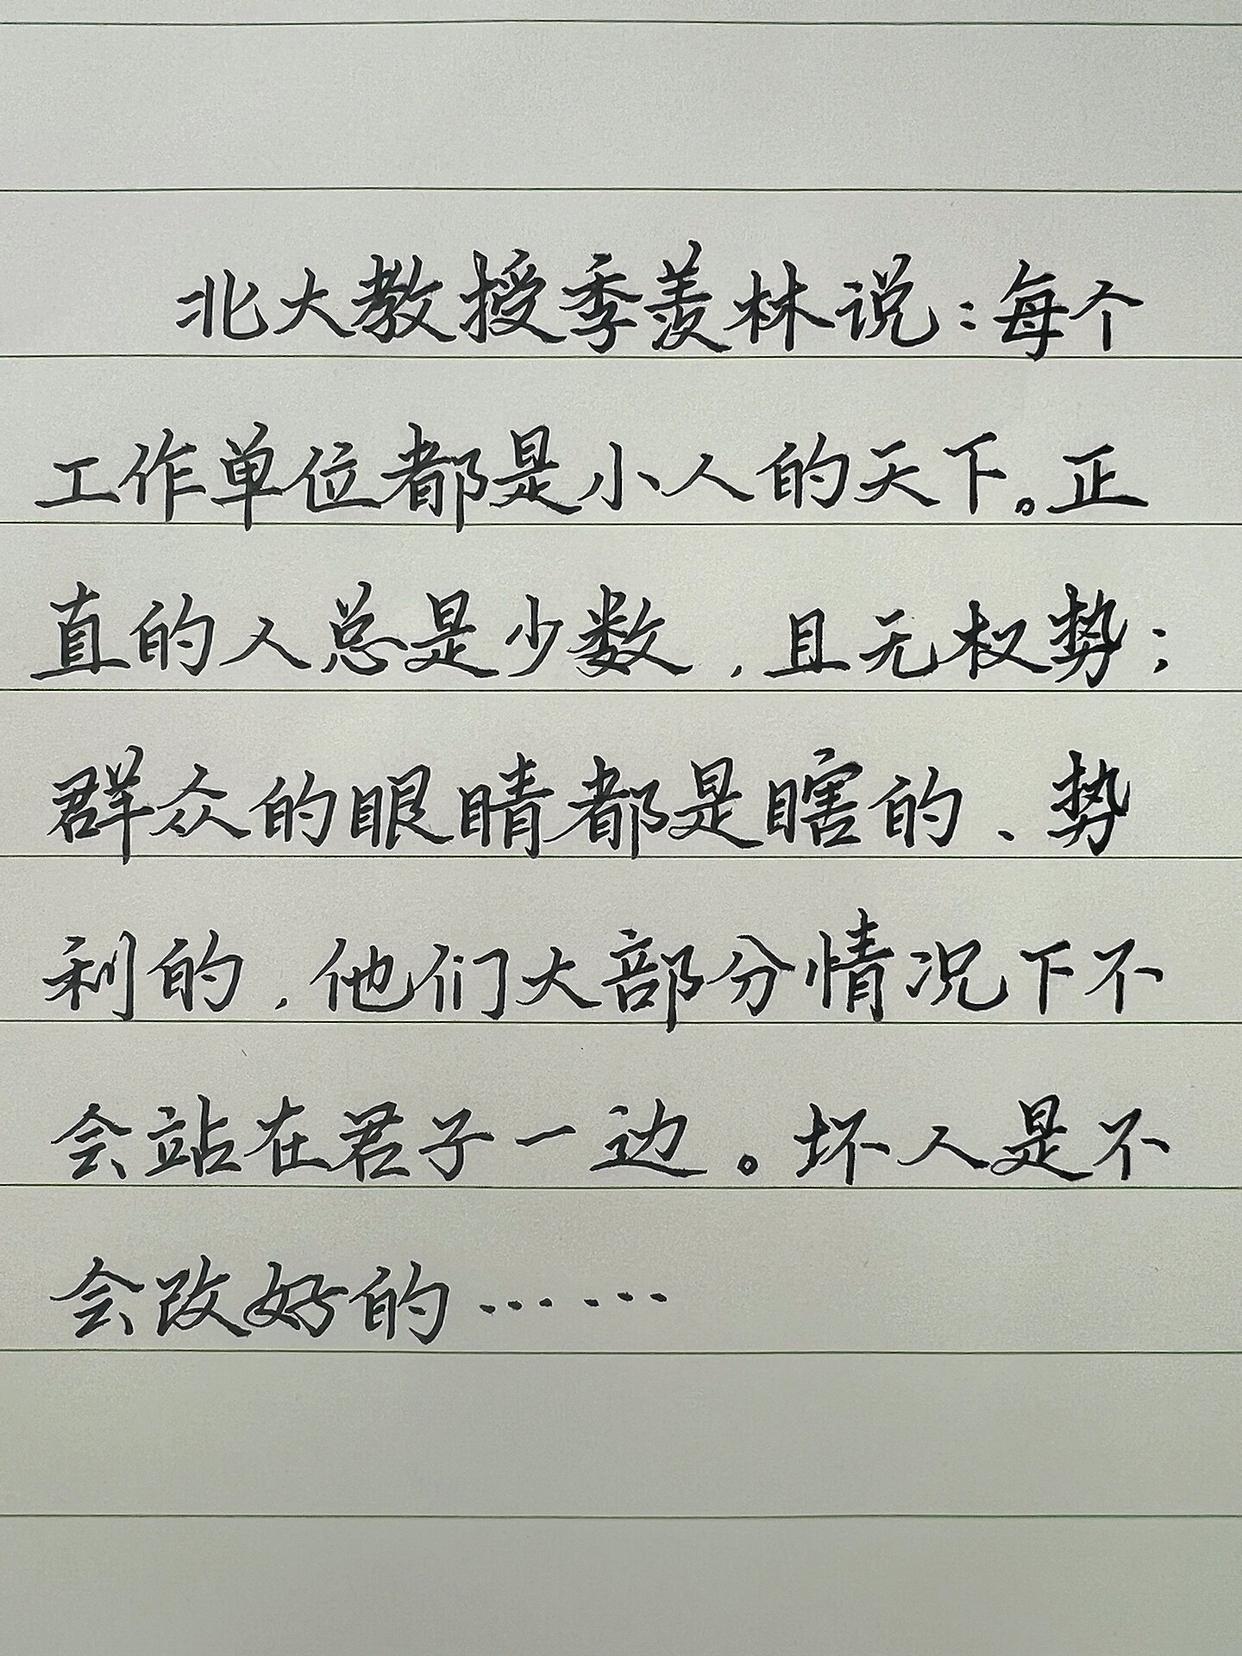 北大教授季羡林说：每个
工作单位都是小人的天下。正
直的人总是少数，且无权势；
群众的眼睛都是瞎的、势
利的，他们大部分情况下不
会站在君子一边。坏人是不
会改好的……